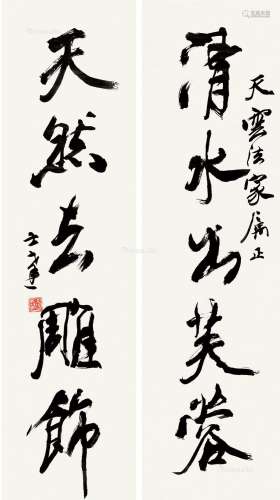 清水出芙蓉
天雲法家屬正
天然去雕飾